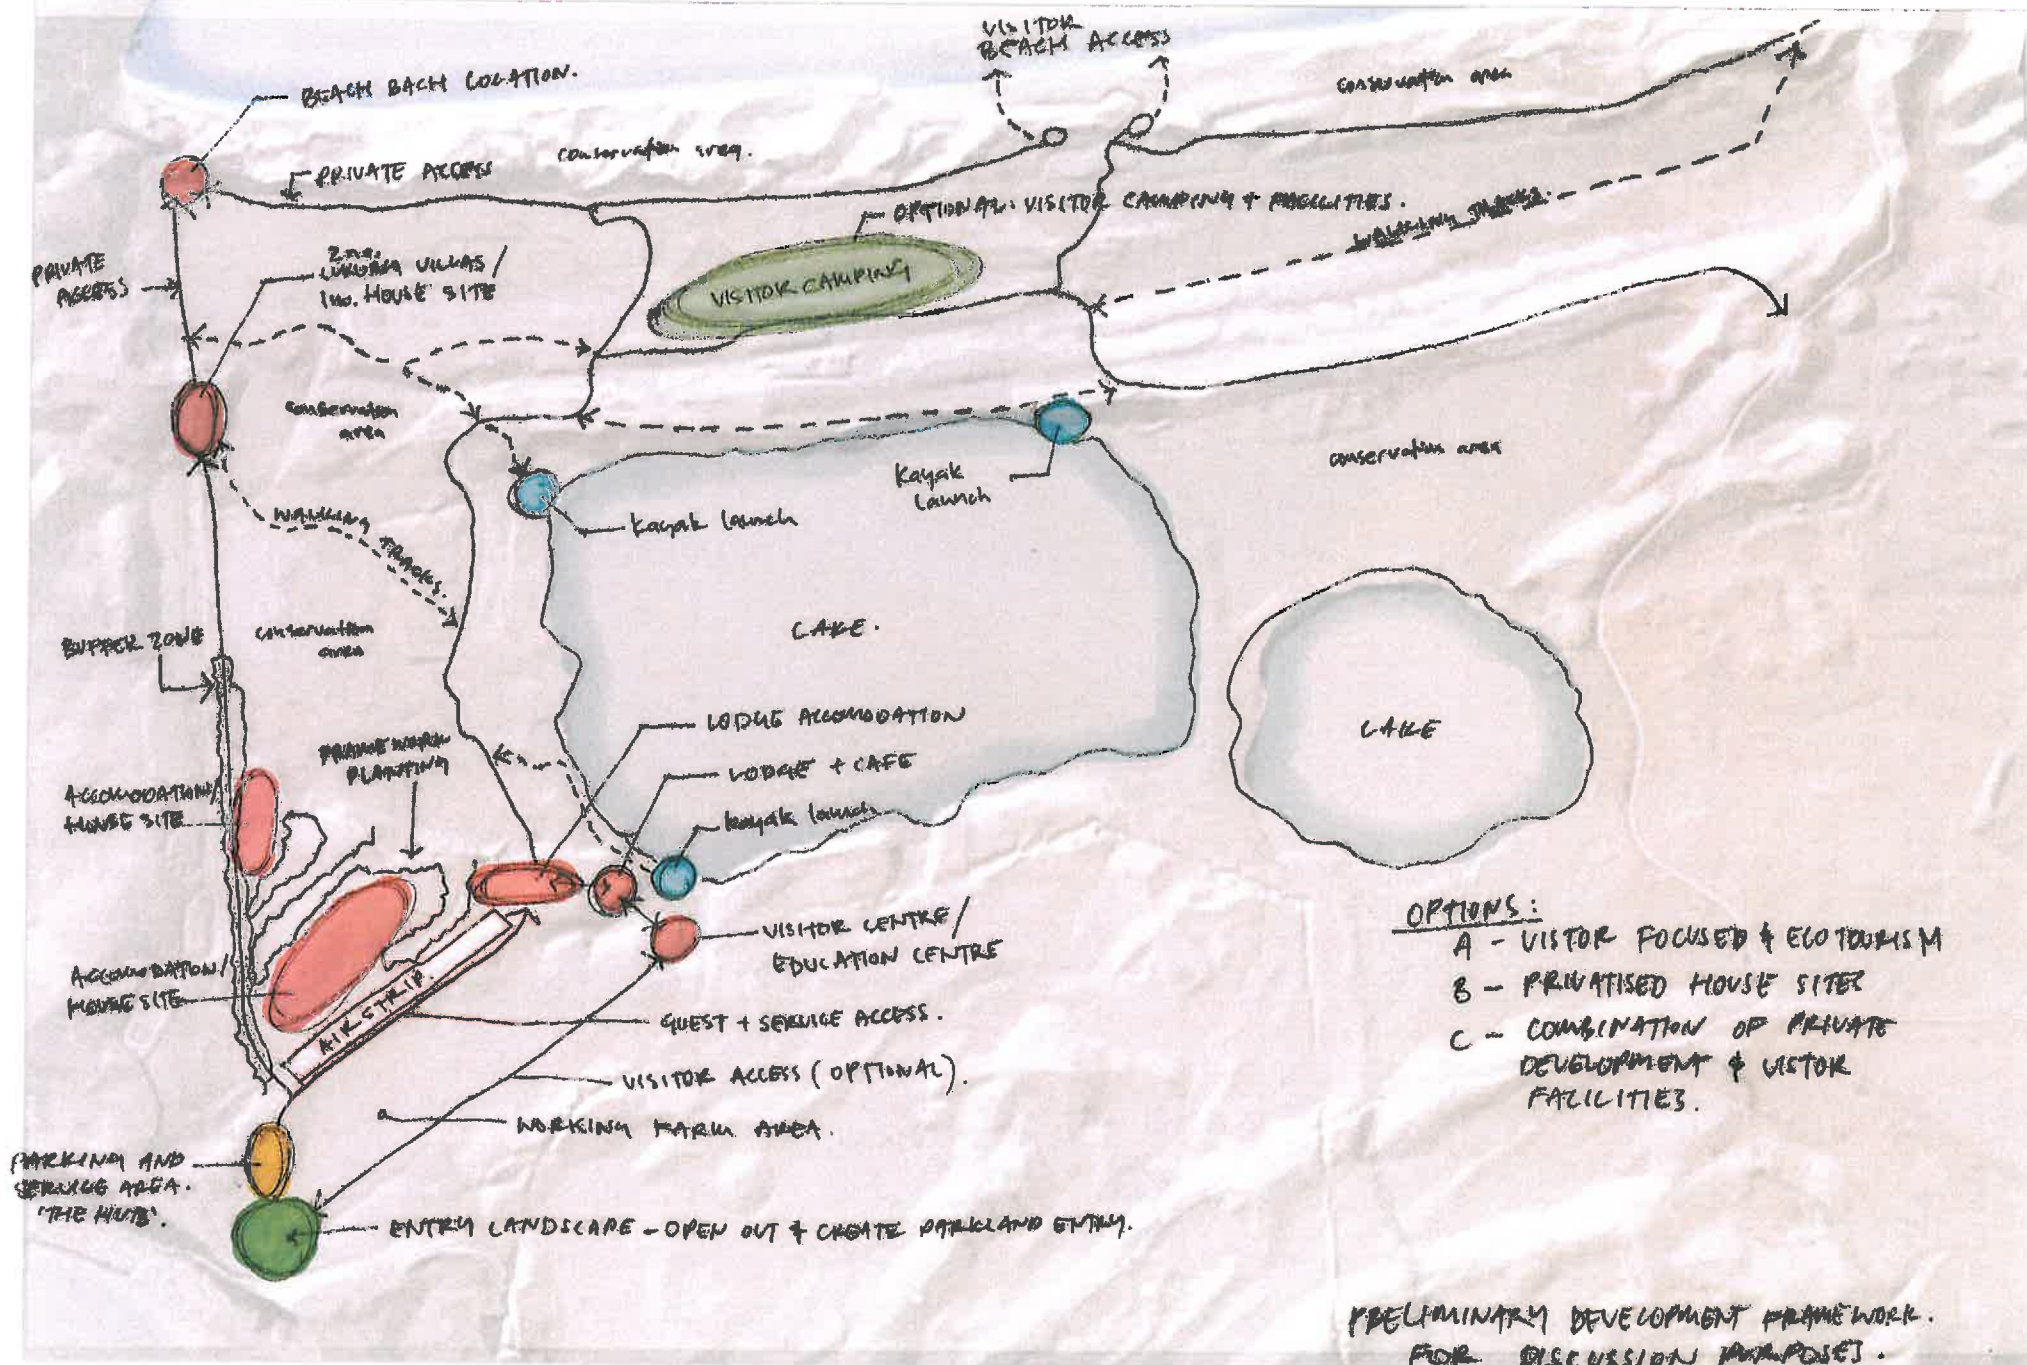 VISITOR
BEACH ACCESS
BEACH BACH LOCATION.
conservation area
PRIVATE ACCESS
conservation area.
OPTIONAL: VISITOR CAMPING + FACILITIES.
WALKING TRACKS.
PRIVATE
ACCESS
2 no.
LUXURY VILLAS/
Inc. HOUSE SITE
VISITOR CAMPING
conservation
area
Kayak
launch
conservation area
kayak launch
WALKING TRACKS.
BUFFER ZONE
conservation
area
LAKE.
LODGE ACCOMODATION
LAKE
FRAMEWORK
PLANTING
LODGE + CAFE
ACCOMODATION/
HOUSE SITE
kayak launch
VISITOR CENTRE/
EDUCATION CENTRE
ACCOMODATION/
HOUSE SITE
AIRSTRIP.
GUEST + SERVICE ACCESS.
VISITOR ACCESS (OPTIONAL).
WORKING FARM AREA.
PARKING AND
SERVICE AREA.
'THE HUB'.
ENTRY LANDSCAPE - OPEN OUT & CREATE PARKLAND ENTRY.
OPTIONS:
A - VISTOR FOCUSED & ECOTOURISM
B - PRIVATISED HOUSE SITES
C - COMBINATION OF PRIVATE
DEVELOPMENT & VISTOR
FACILITIES.
PRELIMINARY DEVELOPMENT FRAMEWORK.
FOR DISCUSSION PURPOSES.